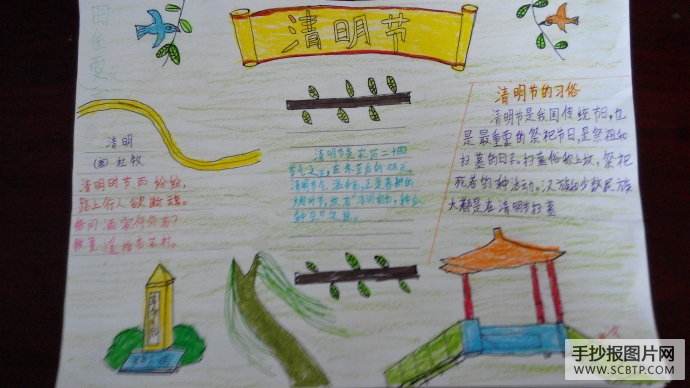 清明节
清明
杜牧
清明时节雨纷纷,
路上行人欲断魂。
借问酒家何处有?
牧童遥指杏花村。
清明节是农历二十四
节气之一,在冬至后的
清明节
清明前后,种瓜
种豆"之
清明节的习俗
清明节是我国传统节日,也
是最重要的祭祀节日,是祭祖和
扫墓的日子。扫墓俗称上坟,祭祀
死者的一种活动。汉族和少数民族
大都是在清明节扫墓
手抄报图片网
WWW.SCBTP.COM